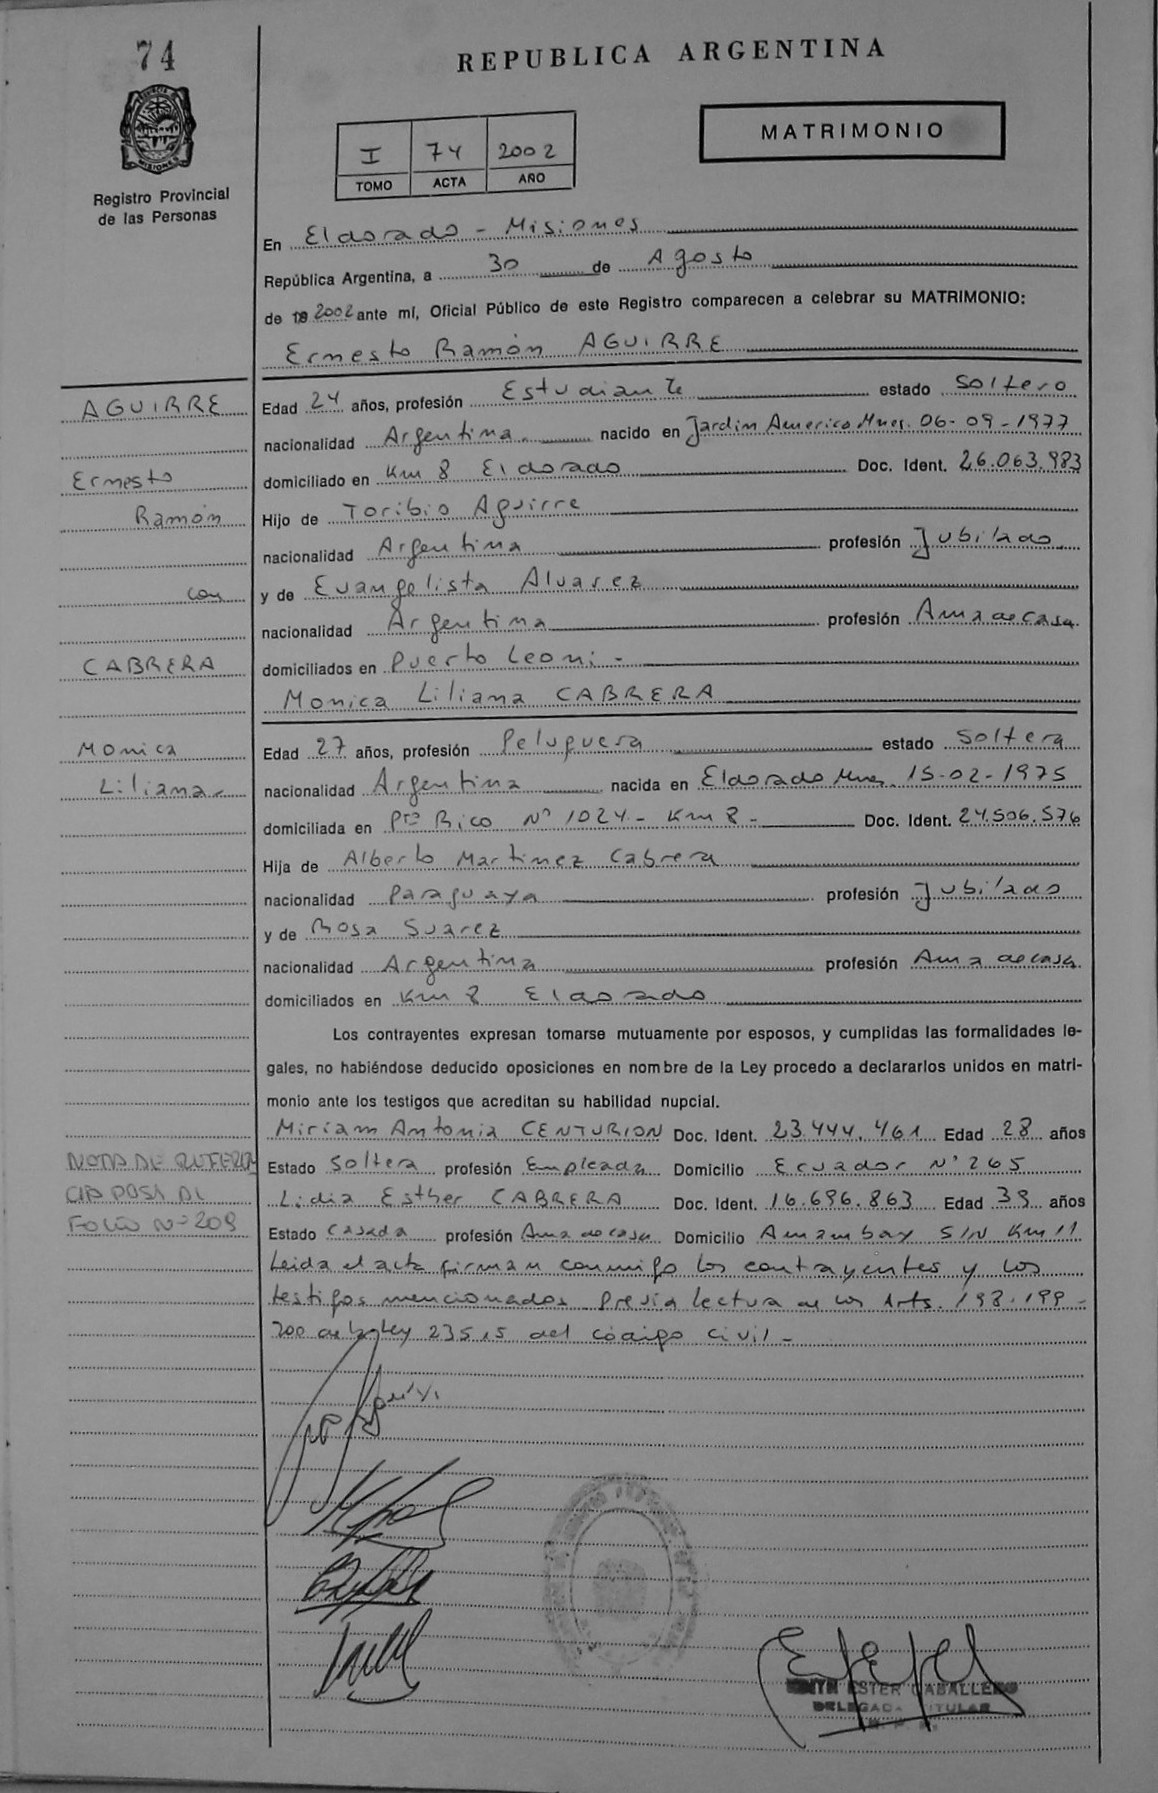 74
REPUBLICA ARGENTINA
MISIONES
Registro Provincial
de las Personas
I 74 2002
TOMO ACTA AÑO
MATRIMONIO
En Eldorado - Misiones
República Argentina, a 30 de Agosto
de 2002 ante mí, Oficial Público de este Registro comparecen a celebrar su MATRIMONIO:
Ernesto Ramón AGUIRRE
AGUIRRE
Ernesto
Ramón
con
CABRERA
Monica
Liliana-
Edad 24 años, profesión Estudiante estado Soltero
nacionalidad Argentina. nacido en Jardin America Mnes. 06-09-1977
domiciliado en Km 8 Eldorado Doc. Ident. 26.063.983
Hijo de Toribio Aguirre
nacionalidad Argentina profesión Jubilado.
y de Evangelista Alvarez
nacionalidad Argentina profesión Ama de casa
domiciliados en Puerto Leoni -
Monica Liliana CABRERA
Edad 27 años, profesión Peluquera estado Soltera
nacionalidad Argentina nacida en Eldorado Mnes. 15-02-1975
domiciliada en Pto Rico Nº 1024 - Km 8 - Doc. Ident. 24.506.576
Hija de Alberto Martinez Cabrera
nacionalidad Paraguaya profesión Jubilado
y de Rosa Suarez
nacionalidad Argentina profesión Ama de casa
domiciliados en Km 8 Eldorado
Los contrayentes expresan tomarse mutuamente por esposos, y cumplidas las formalidades le-
gales, no habiéndose deducido oposiciones en nombre de la Ley procedo a declararlos unidos en matri-
monio ante los testigos que acreditan su habilidad nupcial.
Miriam Antonia CENTURION Doc. Ident. 23.444.461 Edad 28 años
Estado Soltera profesión Empleada Domicilio Ecuador Nº 265
Lidia Esther CABRERA Doc. Ident. 16.696.863 Edad 39 años
Estado Casada profesión Ama de casa Domicilio Amambay S/N Km 11
NOTA DE REFEREN
CIA PASA AL
FOLIO Nº 209
Leida el acta firman conmigo los contrayentes y los
testigos mencionados previa lectura de los Arts. 198-199-
200 de la Ley 23515 del código civil -
EDITH ESTER CABALLERO
DELEGADA TITULAR